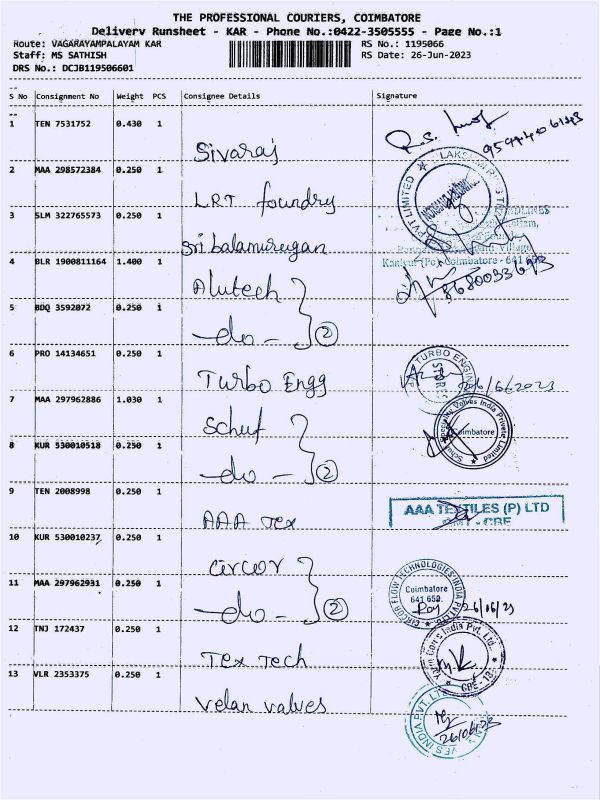 THE PROFESSIONAL COURIERS, COIMBATORE
Delivery Runsheet - KAR - Phone No.:0422-3505555 - Page No.:1
Route: VAGARAYAMPALAYAM KAR
RS No.: 1195066
Staff: MS SATHISH
RS Date: 26-Jun-2023
DRS No.: DCJB119506601
S No Consignment No Weight PCS Consignee Details Signature
1 TEN 7531752 0.430 1 Sivaraj
2 MAA 298572384 0.250 1 LRT foundry
3 SLM 322765573 0.250 1 Sribalamurugan
4 BLR 1900811164 1.400 1 Alutech
Kaniyur (Po), Coimbatore - 641 659
5 BDQ 3592072 0.250 1 -do- 2
6 PRO 14134651 0.250 1 Turbo Engg
TURBO ENGINE
26/6/2023
7 MAA 297962886 1.030 1 Schuf
Schuf Speciality Valves India Private Limited
Coimbatore
8 KUR 530010518 0.250 1 -do- 2
9 TEN 2008998 0.250 1 AAA Tex
AAA TEXTILES (P) LTD
CBE
10 KUR 530010237 0.250 1 Circor
11 MAA 297962931 0.250 1 -do- 2
CIRCOR FLOW TECHNOLOGIES INDIA PVT. LTD
Coimbatore
641 659.
26/06/23
12 TNJ 172437 0.250 1 Tex Tech
India Pvt. Ltd.
13 VLR 2353375 0.250 1 Velan valves
VALVES INDIA PVT. LTD
26/06/23